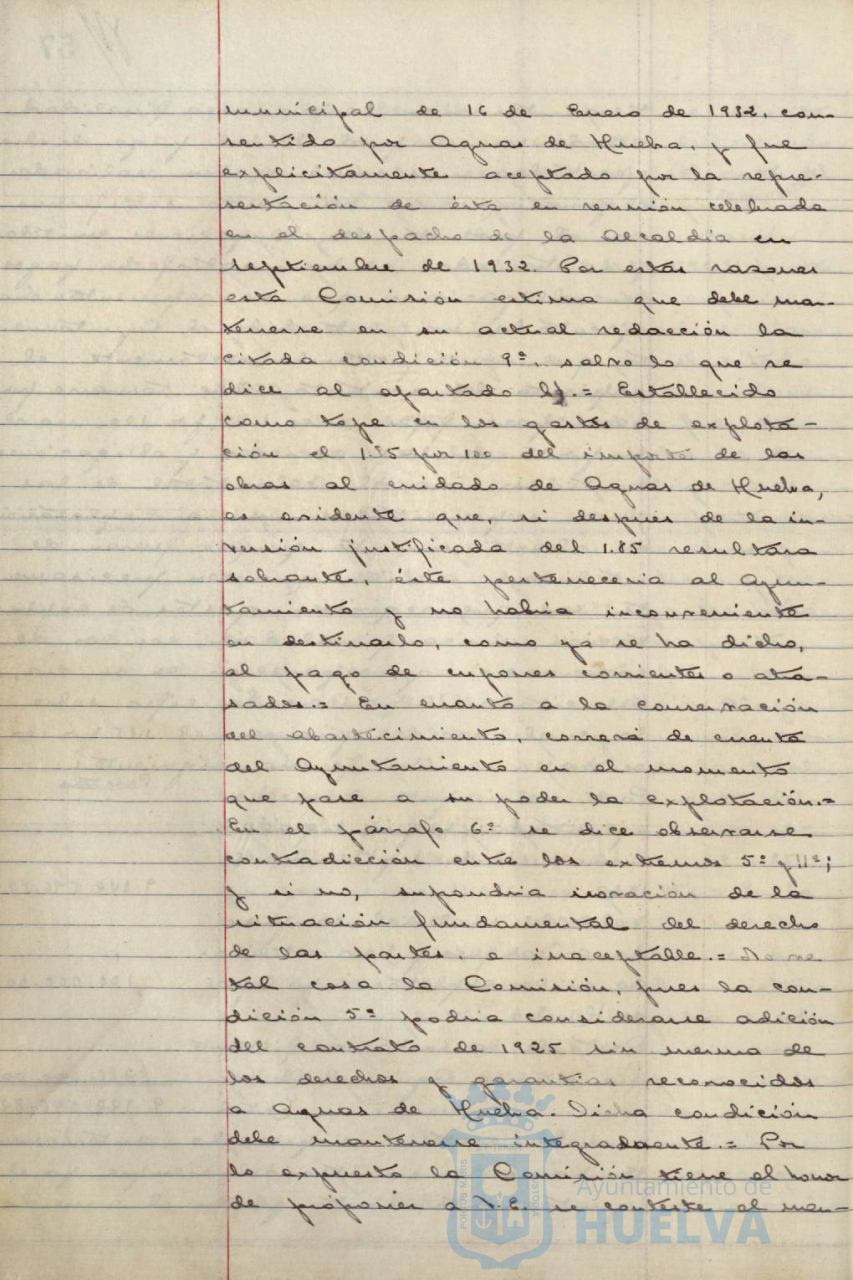 municipal de 16 de Enero de 1932, con-
sentido por Aguas de Huelva, y fue
explicitamente aceptado por la repre-
sentación de ésta en reunión celebrada
en el despacho de la Alcaldía en
septiembre de 1932. Por estas razones
esta Comisión estima que debe man-
tenerse en su actual redacción la
citada condición 9ª, salvo lo que se
dice al apartado b).= Establecido
como tope en los gastos de explota-
ción el 1.85 por 100 del importe de las
obras al cuidado de Aguas de Huelva,
es evidente que, si después de la in-
versión justificada del 1.85 resultara
sobrante, éste pertenecería al Ayun-
tamiento y no habría inconveniente
en destinarlo, como ya se ha dicho,
al pago de cupones corrientes o atra-
sados.= En cuanto a la conservación
del abastecimiento, correrá de cuenta
del Ayuntamiento en el momento
que pase a su poder la explotación.=
En el párrafo 6º se dice observarse
contradicción entre los extremos 5º y 11º;
y si no, supondría inovación de la
situación fundamental del derecho
de las partes, e inaceptable.= No ve
tal cosa la Comisión, pues la con-
dición 5ª podría considerarse adición
del contrato de 1925 sin merma de
los derechos y garantías reconocidos
a Aguas de Huelva. Dicha condición
debe mantenerse integradaente.= Por
lo expuesto la Comisión tiene el honor
de proponer a V.E. se conteste el men-
Ayuntamiento de
HUELVA